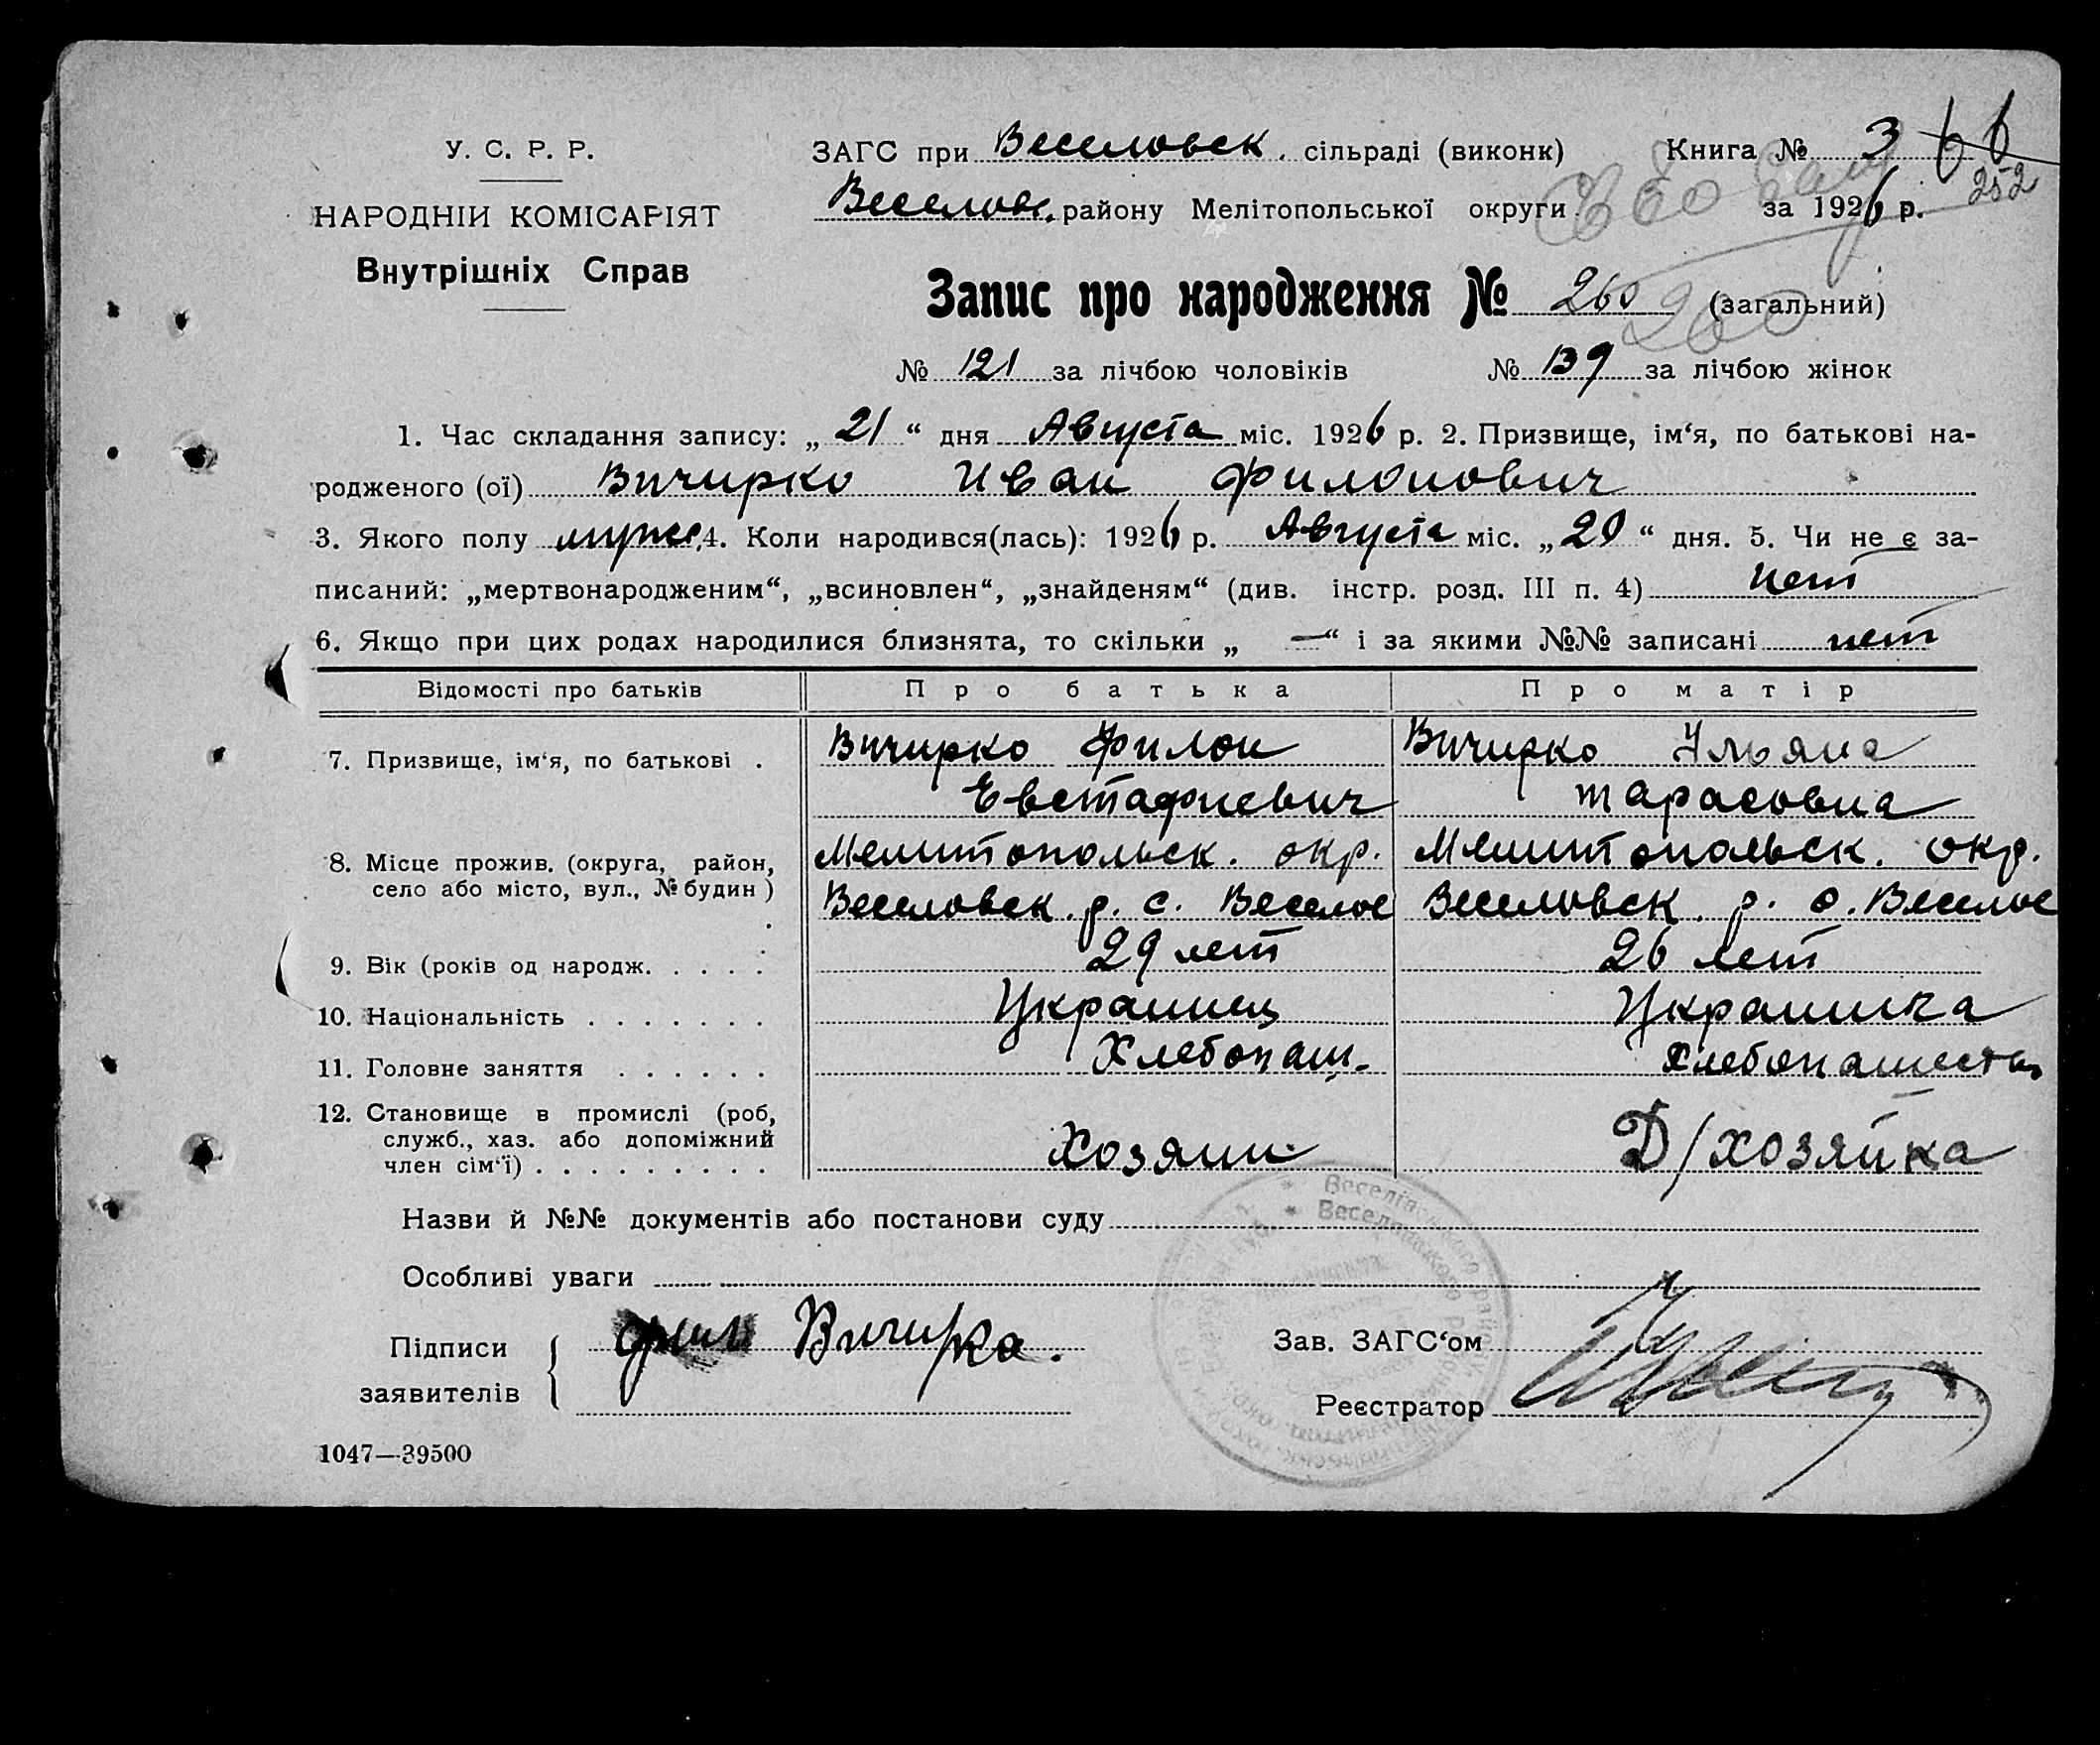 У. С. Р. Р.
НАРОДНІЙ КОМІСАРІЯТ
Внутрішніх Справ
ЗАГС при Веселовск. сільраді (виконк) Книга № 3 6 6
252
Веселов. району Мелітопольської округи за 1926 р.
Запис про народження № 260 (загальний)
260
№ 121 за лічбою чоловіків № 139 за лічбою жінок
1. Час складання запису: „ 21 “ дня Августа міс. 1926 р. 2. Призвище, ім‘я, по батькові на-
родженого (ої) Вичирко Иван Филонович
3. Якого полу мужс. 4. Коли народився(лась): 1926 р. Августа міс. „ 20 “ дня. 5. Чи не є за-
писаний: „мертвонародженим“, „всиновлен“, „знайденям“ (див. інстр. розд. III п. 4) нет
6. Якщо при цих родах народилися близнята, то скільки „ — “ і за якими №№ записані нет
Відомості про батьків Про батька Про матір
7. Призвище, ім‘я, по батькові . Вичирко Филон Вичирко Ульяна
Евстафиевич Тарасовна
8. Місце прожив. (округа, район, Мелитопольск. окр. Мелитопольск. окр.
село або місто, вул., № будин ) Веселовск. р. с. Веселое Веселовск. р. с. Веселое
9. Вік (років од народж. . . . . 29 лет 26 лет
10. Національність . . . . . . . Украинец Украинка
11. Головне заняття . . . . . . Хлебопаш. Хлебопашеств
12. Становище в промислі (роб,
служб., хаз. або допоміжний
член сім‘ї) . . . . . . . . . Хозяин Д/хозяйка
Назви й №№ документів або постанови суду
Особливі уваги
Підписи заявителів { Фил Вичирко.
Зав. ЗАГС‘ом
Реєстратор
1047—39500